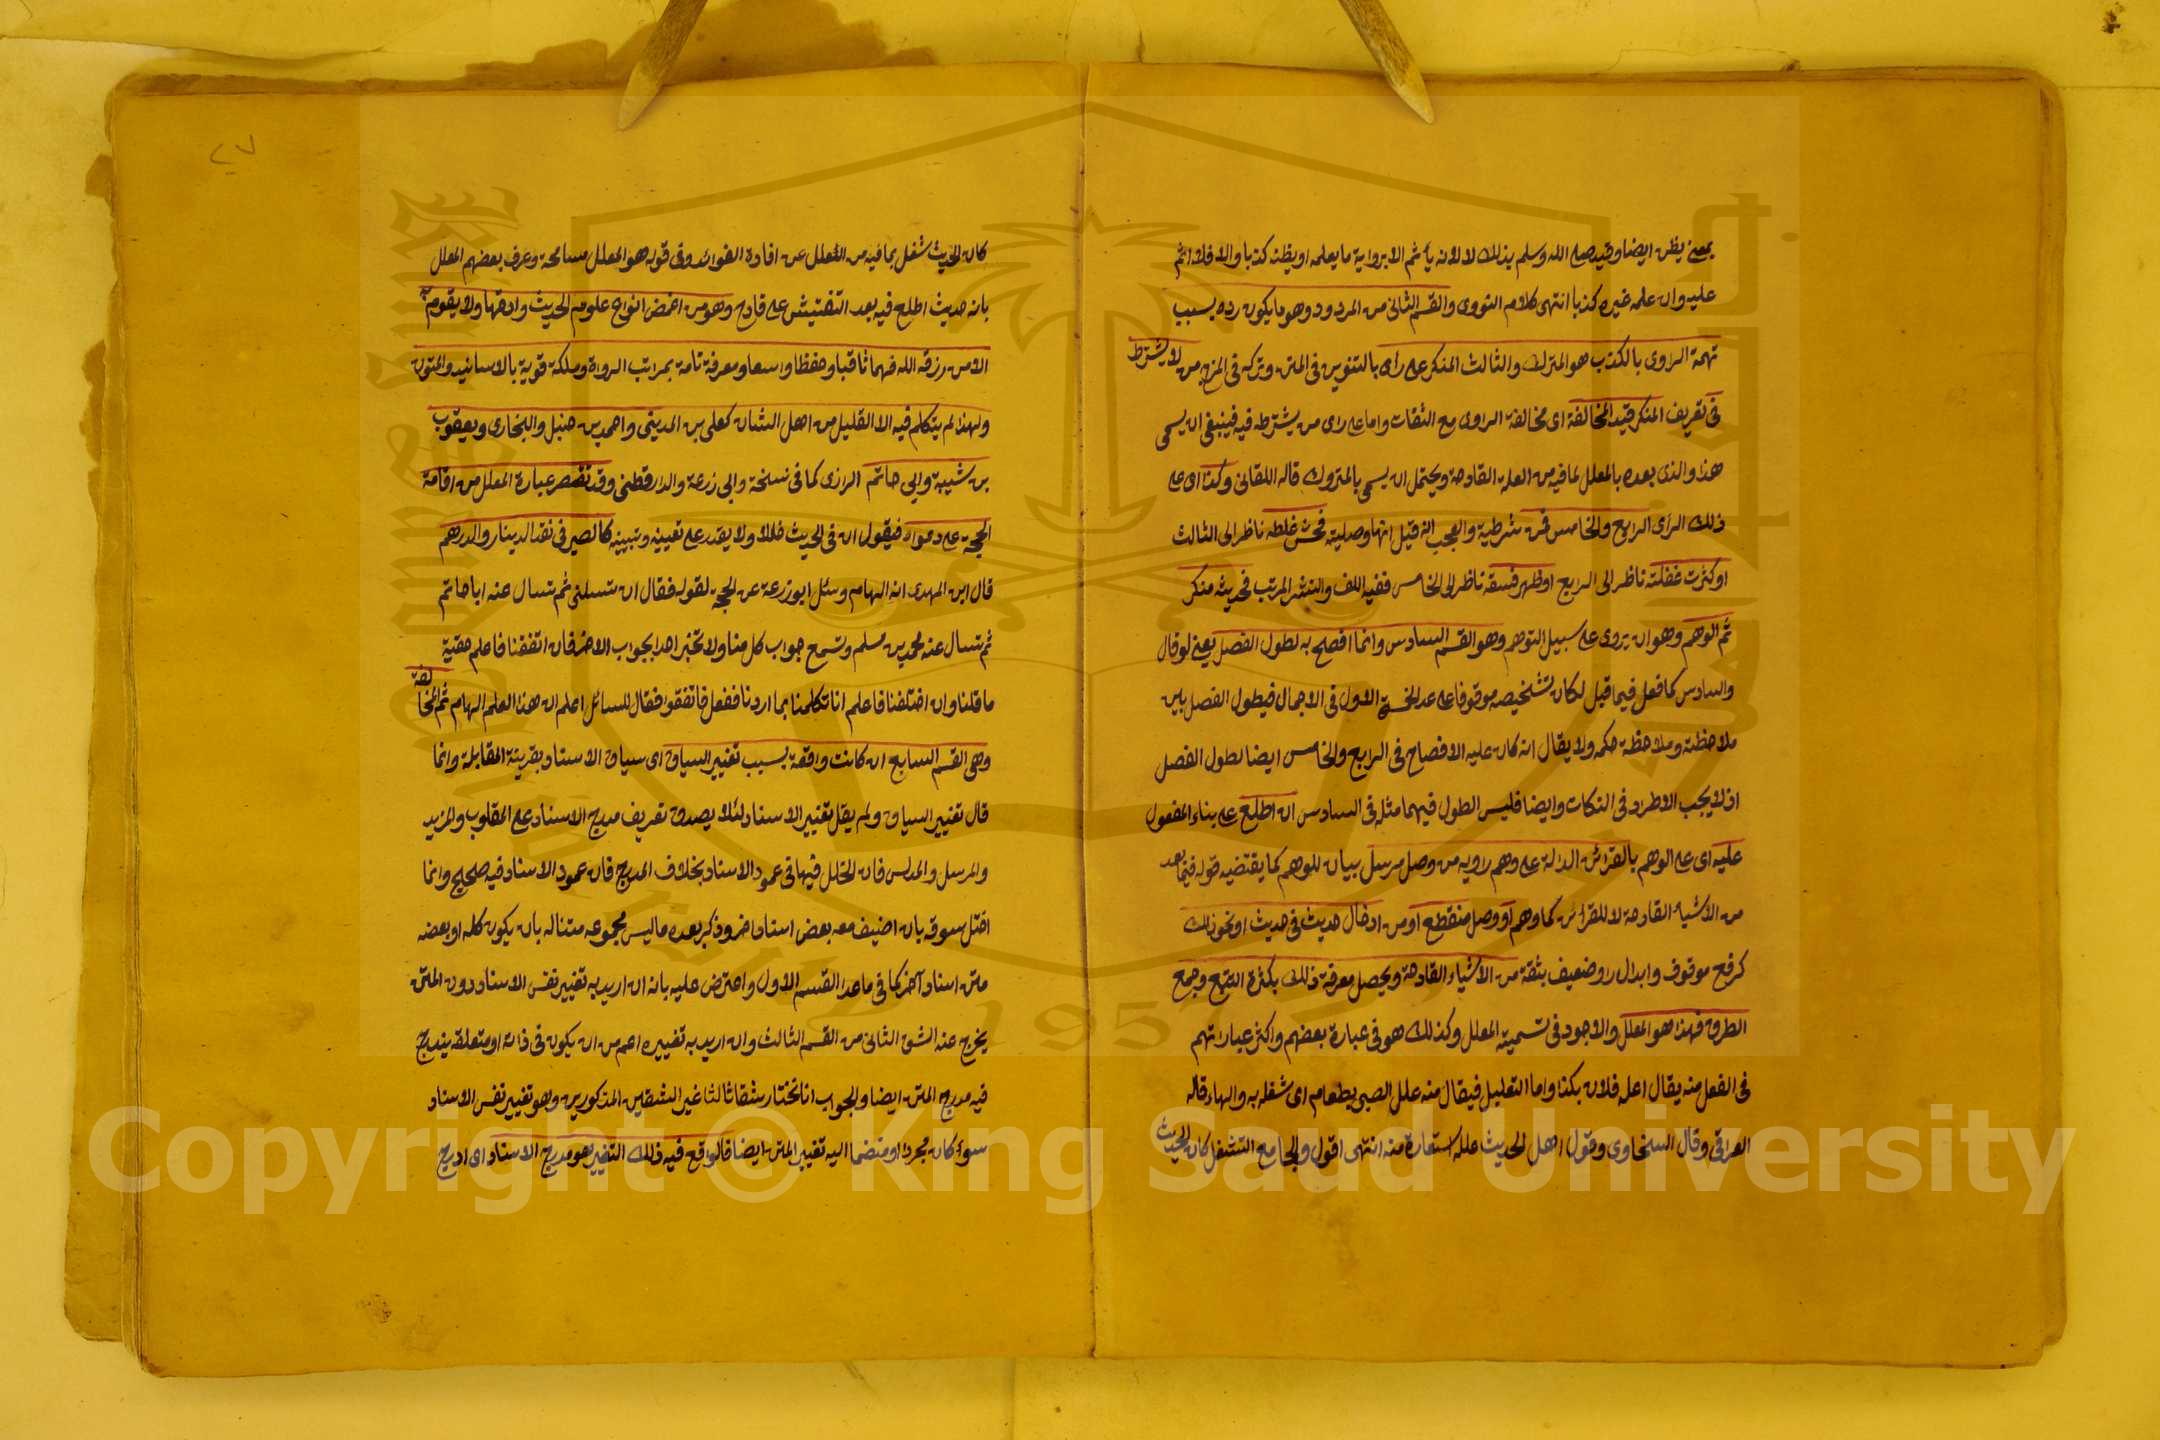 بمعنى يظن ايضا وقيد صلى الله وسلم بذلك لانه لا يأثم الا برواية ما يعلمه او يظنه كذبا والا فلا اثم
عليه وان علمه غيره كذبا انتهى كلام النووى والقسم الثانى من المردود وهو ما يكون رده بسبب
تهمة الراوى بالكذب هو المترك والثالث المنكر على رأى بالتنوين فى المتن وتركه فى المزج من لا يشترط
فى تعريف المنكر قيد المخالفة اى مخالفة الراوى مع الثقات واما على راى من يشترطه فيه فينبغى ان يسمى
هذا والذى بعده بالمعلل لما فيه من العلة القادحة ويحتمل ان يسمى بالمتروك قاله اللقانى وكذا اى على
ذلك الرأى الرابع والخامس فمن شرطية والعجب انه قيل انها وصلية فحش غلطه ناظر الى الثالث
او كثرت غفلته ناظر الى الرابع او ظهر فسقه ناظر الى الخامس ففيه اللف والنشر المرتب فحديثه منكر
ثم الوهم وهو ان يروى على سبيل التوهم وهو القسم السادس وانما افصح به لطول الفصل يعنى لو قال
والسادس كما فعل فيما قبل لكان تشخيصه موقوفا على عد الخمسة الاول فى الاجمال فيطول الفصل بين
ملاحظته وملاحظة حكمه ولا يقال انه كان عليه الافصاح فى الرابع والخامس ايضا لطول الفصل
اذ لا يجب الاطراد فى النكات وايضا فليس الطول فيهما مثله فى السادس ان اطلع على بناء المفعول
عليه اى على الوهم بالقرائن الدالة على وهم رويه من وصل مرسل بيان للوهم كما يقتضيه قوله فيما بعد
من الاشياء القادحة لا للقرائن كما وهم او وصل منقطع او من ادخال حديث فى حديث او نحو ذلك
كرفع موقوف وابدال راو ضعيف بثقة من الاشياء القادحة ويحصل معرفة ذلك بكثرة التتبع وجمع
الطرق فهذا هو المعلل والاجود فى تسميته المعل وكذلك هو فى عبارة بعضهم واكثر عباراتهم
فى الفعل منه يقال اعله فلان بكذا واما التعليل فيقال منه علل الصبى بطعام اى شغله به والهاه قاله
العراقى وقال السخاوى وقول اهل الحديث علله استعارة منه انتهى اقول والجامع التشغل كان الحديث
٢٧
كان الحديث شغل بما فيه من التعلل عن افادة الفوائد وفى قوله هو المعلل مسامحة وعرف بعضهم المعلل
بانه حديث اطلع فيه بعد التفتيش على قادح وهو من اغمض انواع علوم الحديث وادقها ولا يقوم به
الا من رزقه الله فهما ثاقبا وحفظا واسعا ومعرفة تامة بمراتب الرواة وملكة قوية بالاسانيد والمتون
ولهذا لم يتكلم فيه الا القليل من اهل الشان كعلى بن المدينى واحمد بن حنبل والبخارى ويعقوب
بن شيبة وابى حاتم الرازى كما فى نسخة وابى زرعة والدارقطنى وقد تقصر عبارة المعلل من اقامة
الحجة على دعواه فيقول ان فى الحديث خللا ولا يقدر على تعيينه وتبيينه كالصيرفى نقد الدينار والدرهم
قال ابن المهدى انه الهام وسئل ابو زرعة عن الحجة لقوله فقال ان تسلنى ثم تسال عنه ابا حاتم
ثم تسال عنه محمد بن مسلم وتسمع جواب كل منا ولا تخبر احدا بجواب الاخر فان اتفقنا فاعلم حقية
ما قلنا وان اختلفنا فاعلم انا تكلمنا بما اردنا ففعل فاتفقوا فقال للسائل اعلم ان هذا العلم الهام ثم المخالفة
وهى القسم السابع ان كانت واقعة بسبب تغيير السياق اى سياق الاسناد بقرينة المقابلة وانما
قال تغيير السياق ولم يقل تغيير الاسناد لئلا يصدق تعريف مدرج الاسناد على المقلوب والمزيد
والمرسل والمدلس فان الخلل فيها فى عمود الاسناد بخلاف المدرج فان عمود الاسناد فيه صحيح وانما
اختل سوقه بان اضيف معه بعض اسناد اخر وذكر بعده ما ليس مجموعه متنا له بان يكون كله او بعضه
متن اسناد آخر كما فى ما عدا القسم الاول واعترض عليه بانه ان اريد به تغيير نفس الاسناد دون المتن
يخرج عنه الشق الثانى من القسم الثالث وان اريد به تغييره اعم من ان يكون فى ذاته او متعلقه يندرج
فيه مدرج المتن ايضا والجواب انا نختار شقا ثالثا غير الشقين المذكورين وهو تغيير نفس الاسناد
سواء كان مجردا او منضما اليه تغيير المتن ايضا فالواقع فيه ذلك التغيير هو مدرج الاسناد اى ادرج
Copyright © King Saud University
King Saud University
1957